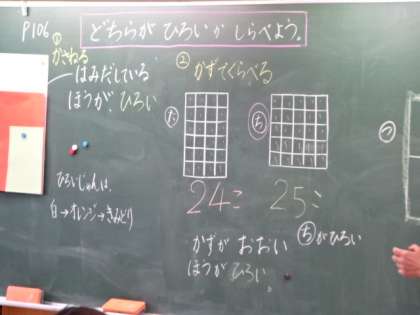 P106
どちらが ひろい か しらべよう。
①
かさねる
はみだしている
ほうが、ひろい
ひろいじゅんは、
白→オレンジ→きみどり
② かずでくらべる
た
ち
つ
24こ
25こ
かずが おおい
ほうが ひろい。
ちがひろい